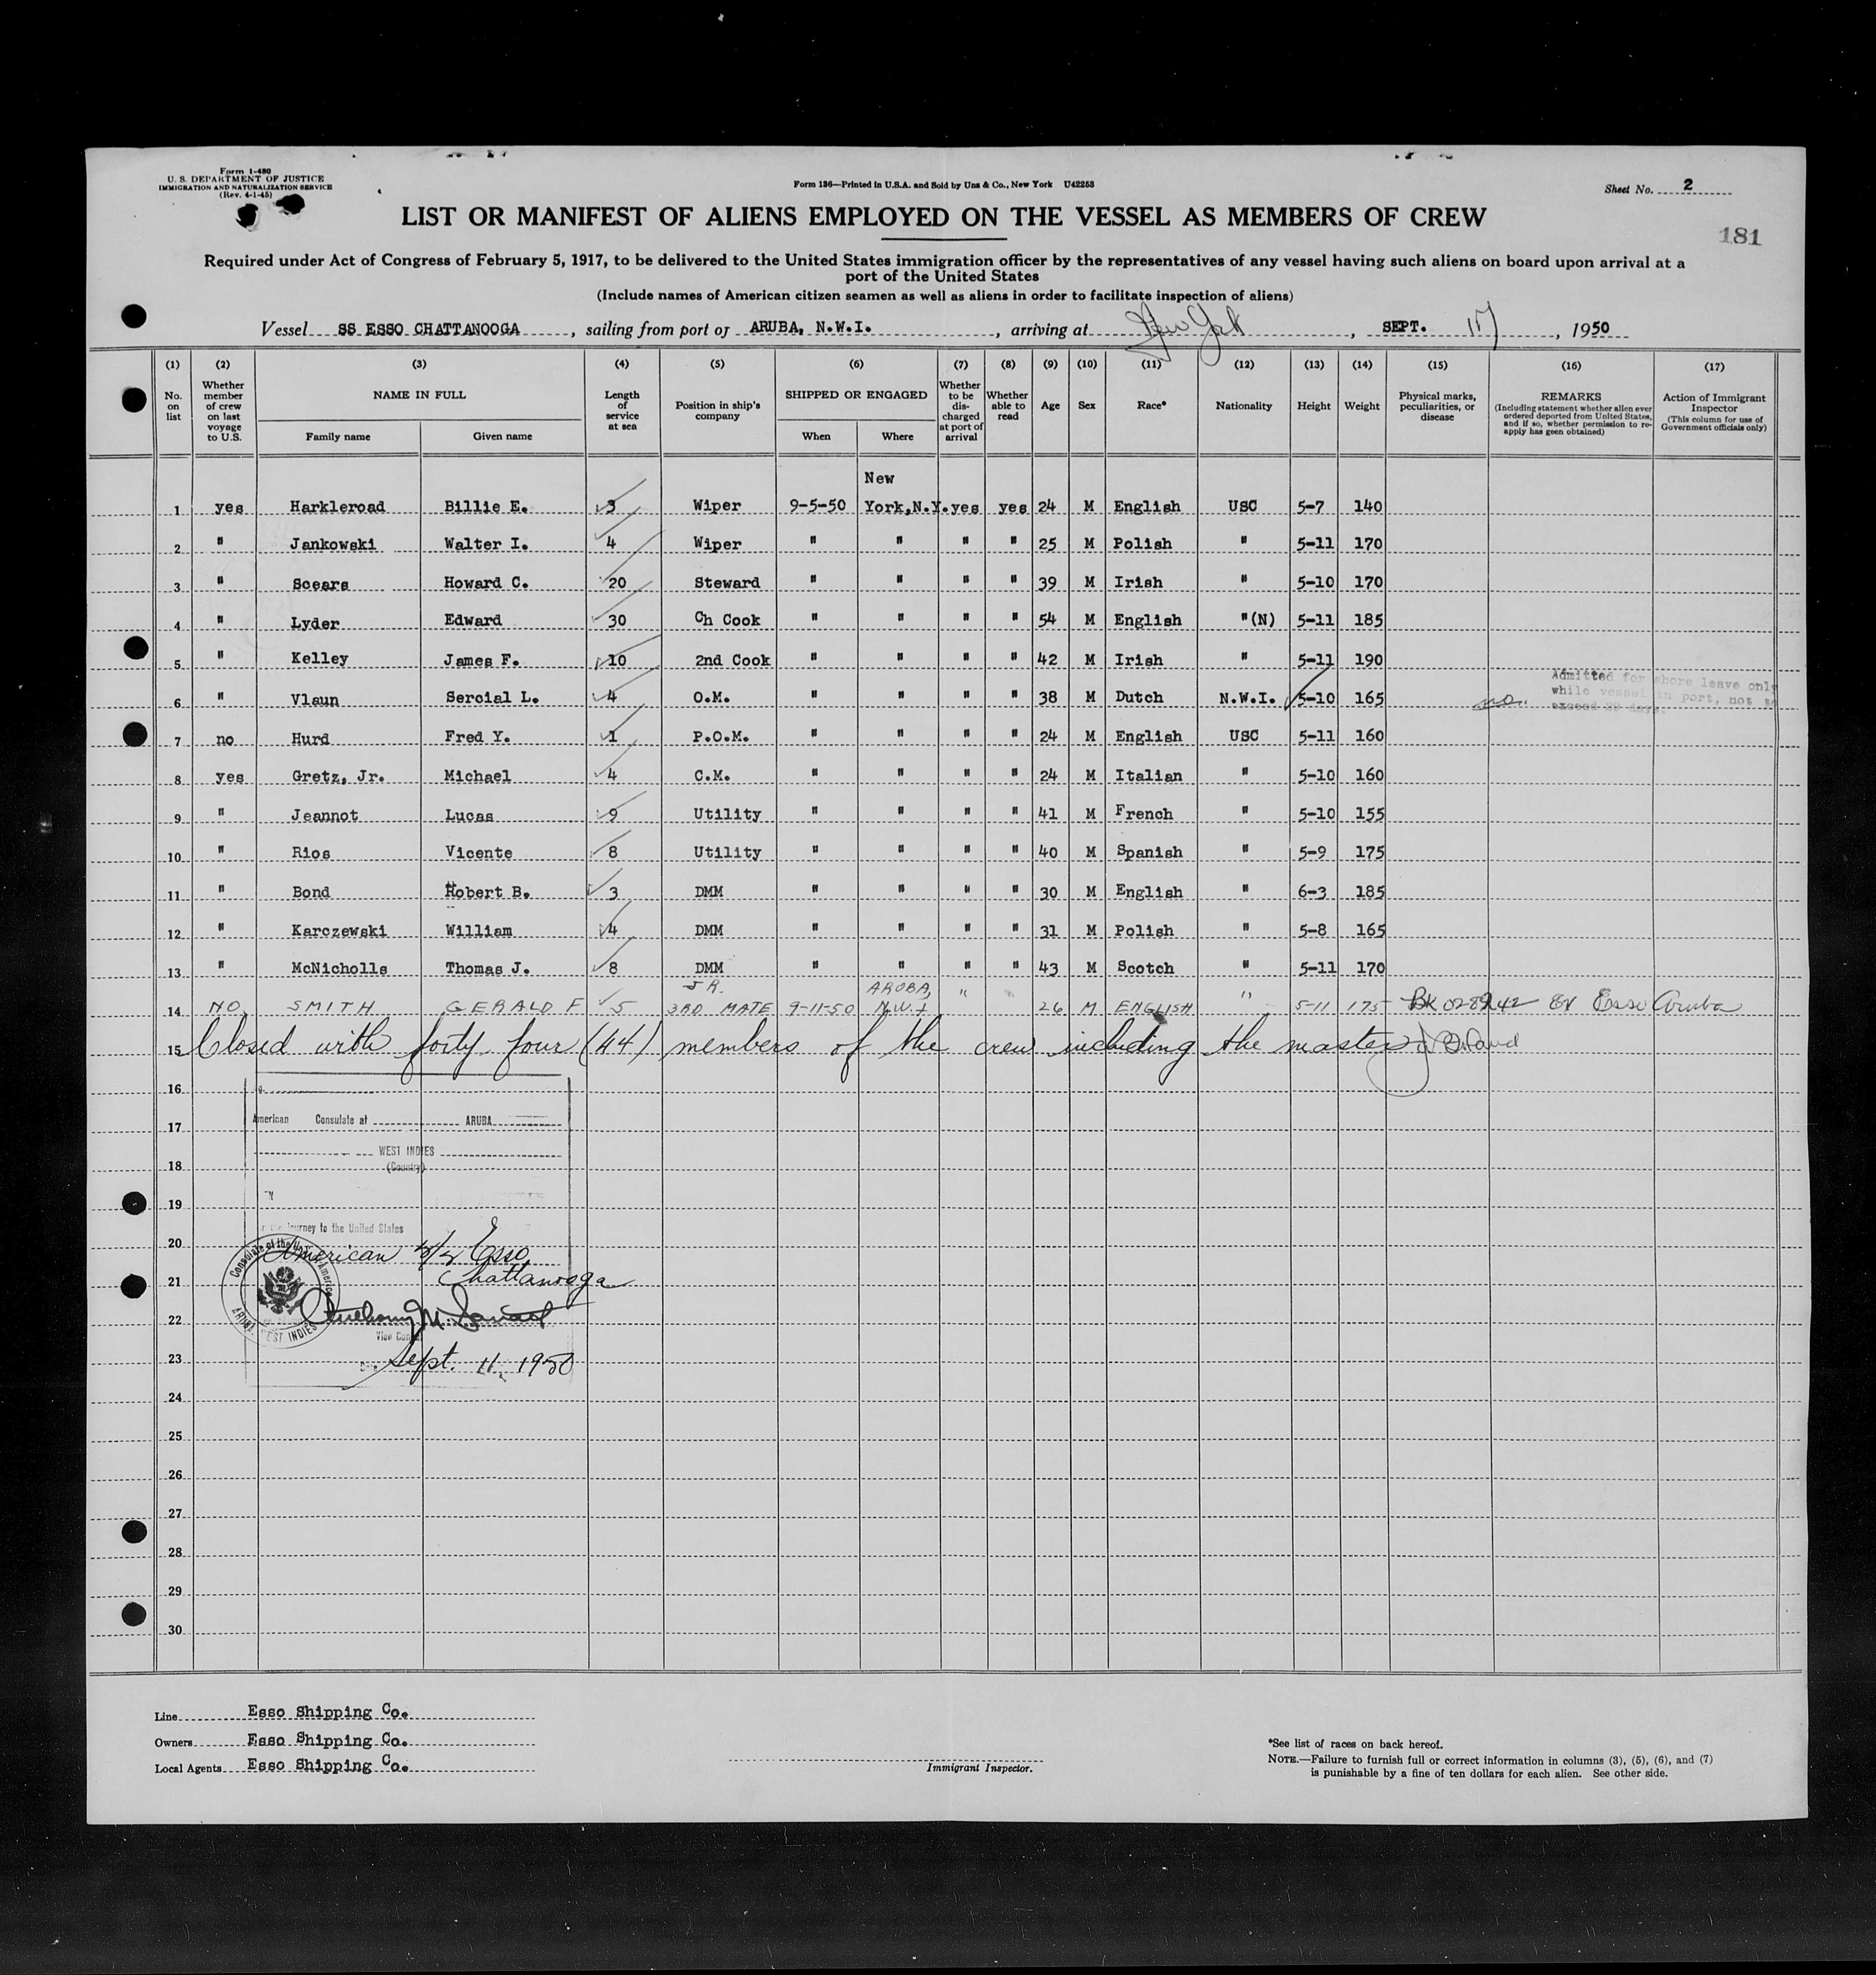 Form I-480
U. S. DEPARTMENT OF JUSTICE
IMMIGRATION AND NATURALIZATION SERVICE
(Rev. 4-1-45)
Form 136—Printed in U.S.A. and Sold by Unz & Co., New York U42253
Sheet No. 2
LIST OR MANIFEST OF ALIENS EMPLOYED ON THE VESSEL AS MEMBERS OF CREW
181
Required under Act of Congress of February 5, 1917, to be delivered to the United States immigration officer by the representatives of any vessel having such aliens on board upon arrival at a
port of the United States
(Include names of American citizen seamen as well as aliens in order to facilitate inspection of aliens)
Vessel SS ESSO CHATTANOOGA, sailing from port of ARUBA, N.W.I., arriving at New York, SEPT. 17, 1950
(1) (2) (3) (4) (5) (6) (7) (8) (9) (10) (11) (12) (13) (14) (15) (16) (17)
No. on list Whether member of crew on last voyage to U.S. NAME IN FULL Family name Given name Length of service at sea Position in ship's company SHIPPED OR ENGAGED When Where Whether to be discharged at port of arrival Whether able to read Age Sex Race* Nationality Height Weight Physical marks, peculiarities, or disease REMARKS (Including statement whether alien ever ordered deported from United States, and if so, whether permission to re-apply has geen obtained) Action of Immigrant Inspector (This column for use of Government officials only)
1 yes Harkleroad Billie E. 3 Wiper 9-5-50 New York,N.Y. yes yes 24 M English USC 5-7 140
2 " Jankowski Walter I. 4 Wiper " " " " 25 M Polish " 5-11 170
3 " Scears Howard C. 20 Steward " " " " 39 M Irish " 5-10 170
4 " Lyder Edward 30 Ch Cook " " " " 54 M English "(N) 5-11 185
5 " Kelley James F. 10 2nd Cook " " " " 42 M Irish " 5-11 190
6 " Vlaun Sercial L. 4 O.M. " " " " 38 M Dutch N.W.I. 5-10 165 no. Admitted for shore leave only while vessel in port, not to exceed 29 days.
7 no Hurd Fred Y. 1 P.O.M. " " " " 24 M English USC 5-11 160
8 yes Gretz, Jr. Michael 4 C.M. " " " " 24 M Italian " 5-10 160
9 " Jeannot Lucas 9 Utility " " " " 41 M French " 5-10 155
10 " Rios Vicente 8 Utility " " " " 40 M Spanish " 5-9 175
11 " Bond Robert B. 3 DMM " " " " 30 M English " 6-3 185
12 " Karczewski William 4 DMM " " " " 31 M Polish " 5-8 165
13 " McNicholls Thomas J. 8 DMM " " " " 43 M Scotch " 5-11 170
14 NO SMITH GERALD F 5 JR. 3RD MATE 9-11-50 ARUBA, N.W.I " " 26 M ENGLISH " 5-11 175 BK 028242 Ex Esso Aruba
15 Closed with forty-four (44) members of the crew including the master
16
American Consulate at ARUBA
17
WEST INDIES
18 (Country)
19
journey to the United States
20 American S/S Esso
21 Chattanooga
Consulate of the United States of America
ARUBA, WEST INDIES
22
Vice Consul
23 Sept. 11, 1950
24
25
26
27
28
29
30
Line Esso Shipping Co.
Owners Esso Shipping Co.
Local Agents Esso Shipping Co.
Immigrant Inspector.
*See list of races on back hereof.
NOTE.—Failure to furnish full or correct information in columns (3), (5), (6), and (7)
is punishable by a fine of ten dollars for each alien. See other side.